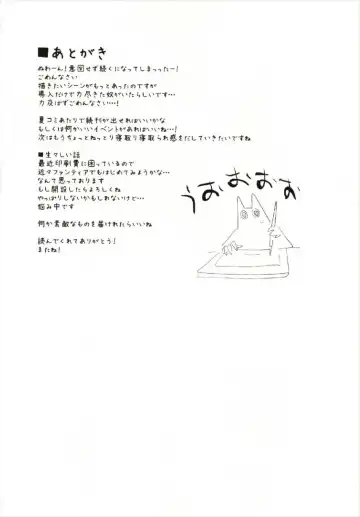 ■あとがき
ぬわーん!意図せず続くになってしまったー!
ごめんなさい
描きたいシーンがもっとあったのですが
導入だけで力尽きた奴がいたらしいです…
力及ばずごめんなさい…!
夏コミあたりで続刊が出せればいいかな
もしくは何かいいイベントがあればいいね…!
次はもうちょっとねっとり寝取り寝取られ感をだしていきたいですね
■生々しい話
最近印刷費に困っているので
近々ファンティアでもはじめてみようかな…
なんて思っております
もし開設したらよろしくね
やっぱりしないかもしれないけど…
悩み中です
何か素敵なものを届けれたらいいね
読んでくれてありがとう!
またね!
うおおおお